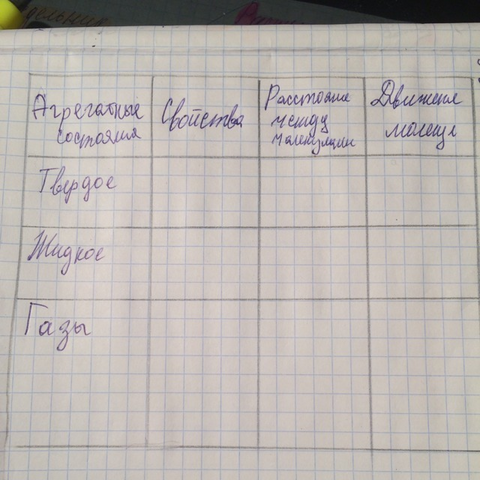 Агрегатные
состояния
Свойства
Расстояние
между
малекулами
Движения
молекул
Твердое
Жидкое
Газы